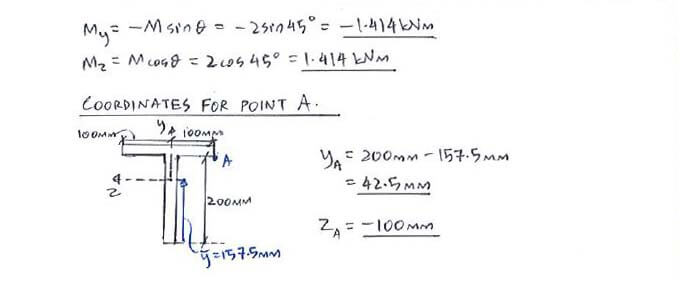 My = -M sinθ = -2 sin45° = -1.414kNm
Mz = M cosθ = 2 cos 45° = 1.414 kNm
COORDINATES FOR POINT A.
100mm yA 100mm
A
z
200mm
ȳ=157.5mm
yA = 200mm - 157.5mm
= 42.5mm
zA = -100mm